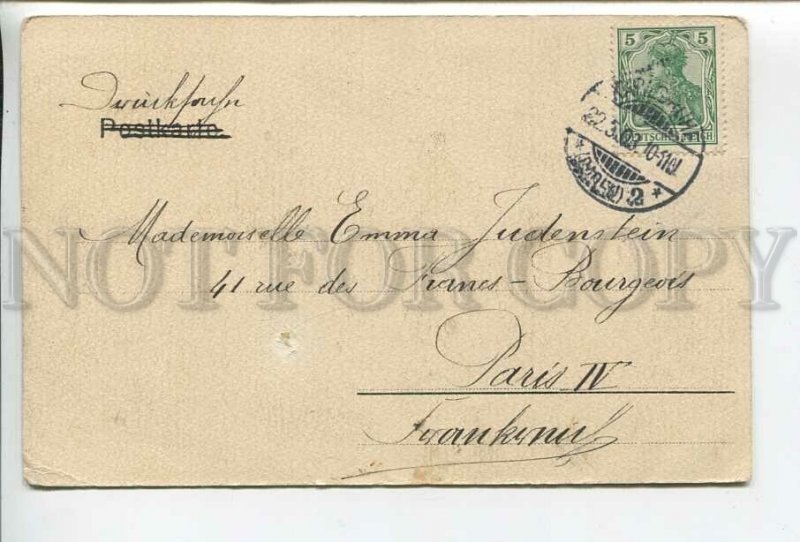 Drucksache
Postkarte
5 5
DEUTSCHES REICH
22.3.03. 10-11V.
2
Mademoiselle Emma Judenstein
41 rue des Francs-Bourgeois
Paris IV
Frankreich
NOT FOR COPY